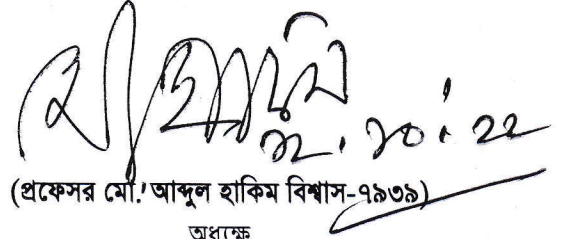 ১২.১০.২২
(প্রফেসর মো: আব্দুল হাকিম বিশ্বাস-৭৯৩৯)
অধ্যক্ষ